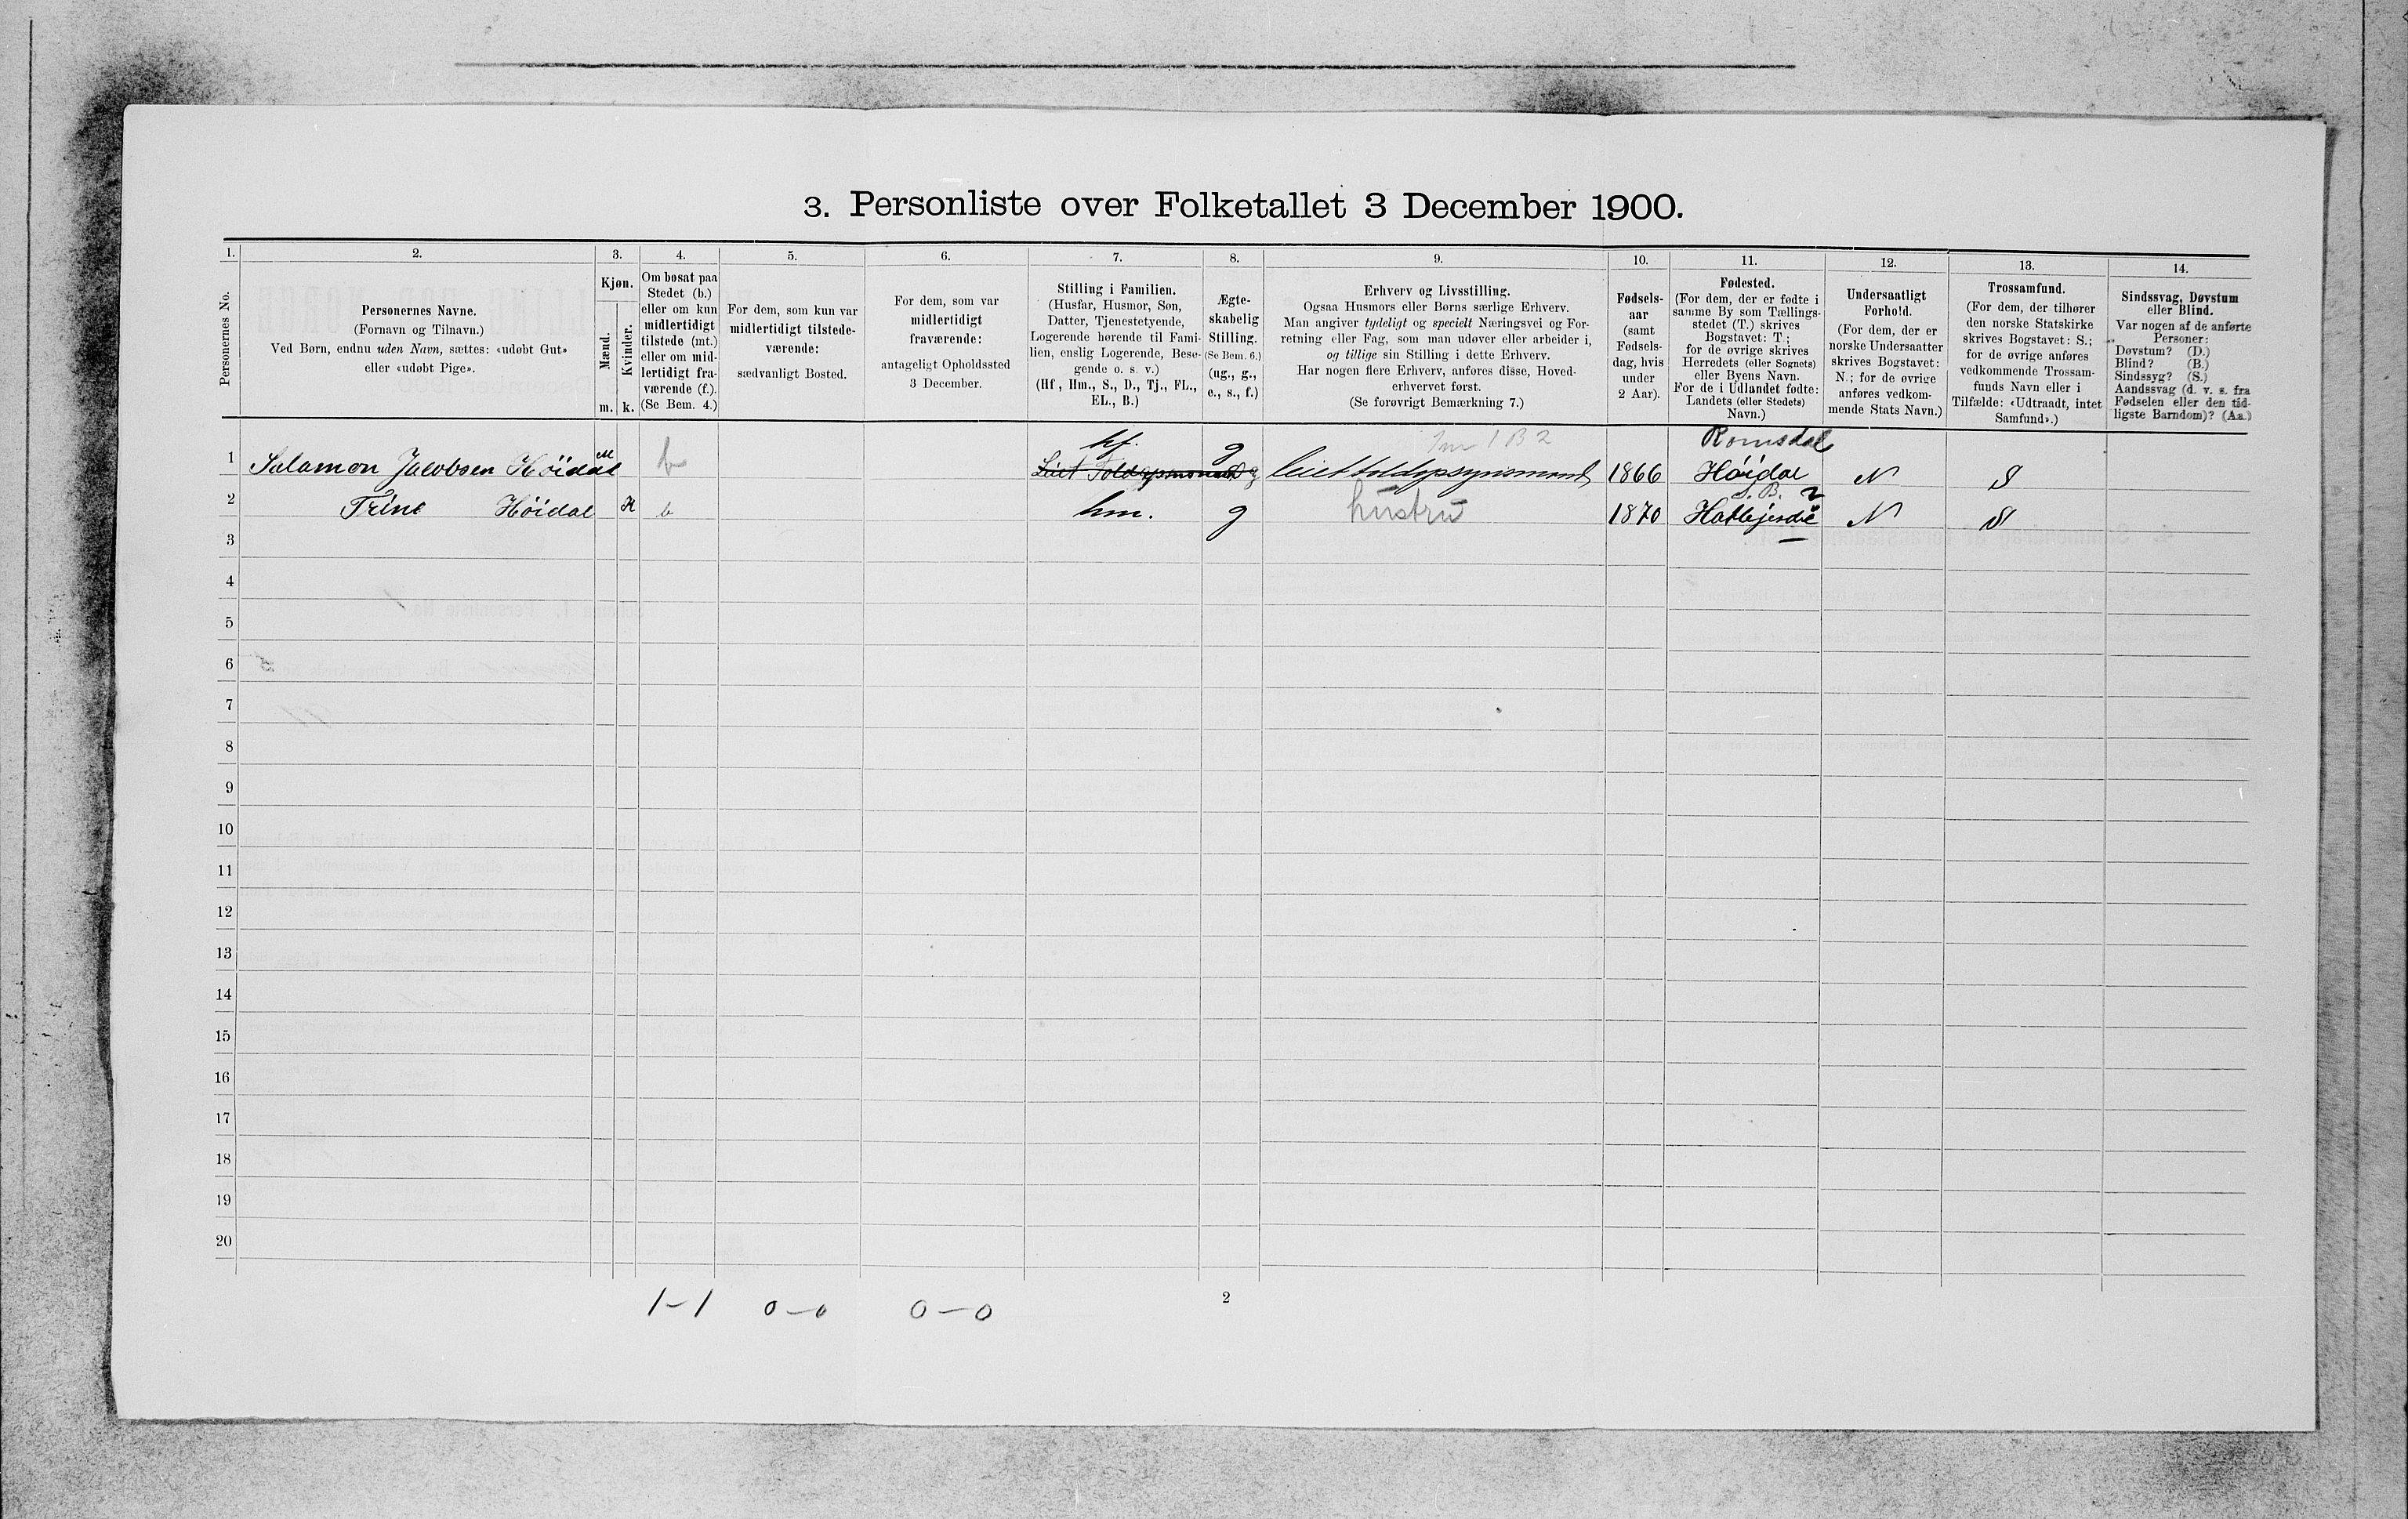 3. Personliste over Folketallet 3 December 1900.
1. 2. 3. 4. 5. 6. 7. 8. 9. 10. 11. 12. 13. 14.
Personernes No.
Personernes Navne.
(Fornavn og Tilnavn.)
Ved Børn, endnu uden Navn, sættes: «udøbt Gut»
eller «udøbt Pige».
Kjøn.
Mænd.
Kvinder.
m. k.
Om bosat paa
Stedet (b.)
eller om kun
midlertidigt
tilstede (mt.)
eller om mid-
lertidigt fra-
værende (f.).
(Se Bem. 4.)
For dem, som kun var
midlertidigt tilstede-
værende:
sædvanligt Bosted.
For dem, som var
midlertidigt
fraværende:
antageligt Opholdssted
3 December.
Stilling i Familien.
(Husfar, Husmor, Søn,
Datter, Tjenestetyende,
Logerende hørende til Fami-
lien, enslig Logerende, Besø-
gende o. s. v.)
(Hf, Hm., S., D., Tj., FL.,
EL., B.)
Ægte-
skabelig
Stilling.
(Se Bem. 6.)
(ug., g.,
e., s., f.)
Erhverv og Livsstilling.
Ogsaa Husmors eller Børns særlige Erhverv.
Man angiver tydeligt og specielt Næringsvei og For-
retning eller Fag, som man udøver eller arbeider i,
og tillige sin Stilling i dette Erhverv.
Har nogen flere Erhverv, anføres disse, Hoved-
erhvervet først.
(Se forøvrigt Bemærkning 7.)
Fødsels-
aar
(samt
Fødsels-
dag, hvis
under
2 Aar).
Fødested.
(For dem, der er fødte i
samme By som Tællings-
stedet (T.) skrives
Bogstavet: T;
for de øvrige skrives
Herredets (eller Sognets)
eller Byens Navn.
For de i Udlandet fødte:
Landets (eller Stedets)
Navn.)
Undersaatligt
Forhold.
(For dem, der er
norske Undersaatter
skrives Bogstavet:
N.; for de øvrige
anføres vedkom-
mende Stats Navn.)
Trossamfund.
(For dem, der tilhører
den norske Statskirke
skrives Bogstavet: S.;
for de øvrige anføres
vedkommende Trossam-
funds Navn eller i
Tilfælde: «Udtraadt, intet
Samfund».)
Sindssvag, Døvstum
eller Blind.
Var nogen af de anførte
Personer:
Døvstum? (D.)
Blind? (B.)
Sindssyg? (S.)
Aandssvag (d. v. s. fra
Fødselen eller den tid-
ligste Barndom)? (Aa.)
hf. g 1 B 2 Romsdal
1 Salamon Jacobsen Höidal M b leiet toldopsynsmand 1866 Höidal N S
S. B.
2 Trine Höidal K b hm. g hustru 1870 N S
3
4
5
6
7
8
9
10
11
12
13
14
15
16
17
18
19
20
1-1 0-0 0-0 2